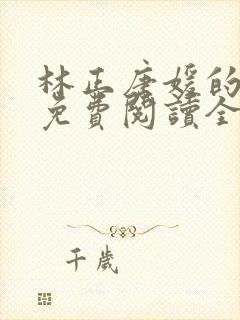 林正唐媛的
免費閱讀全
千歲